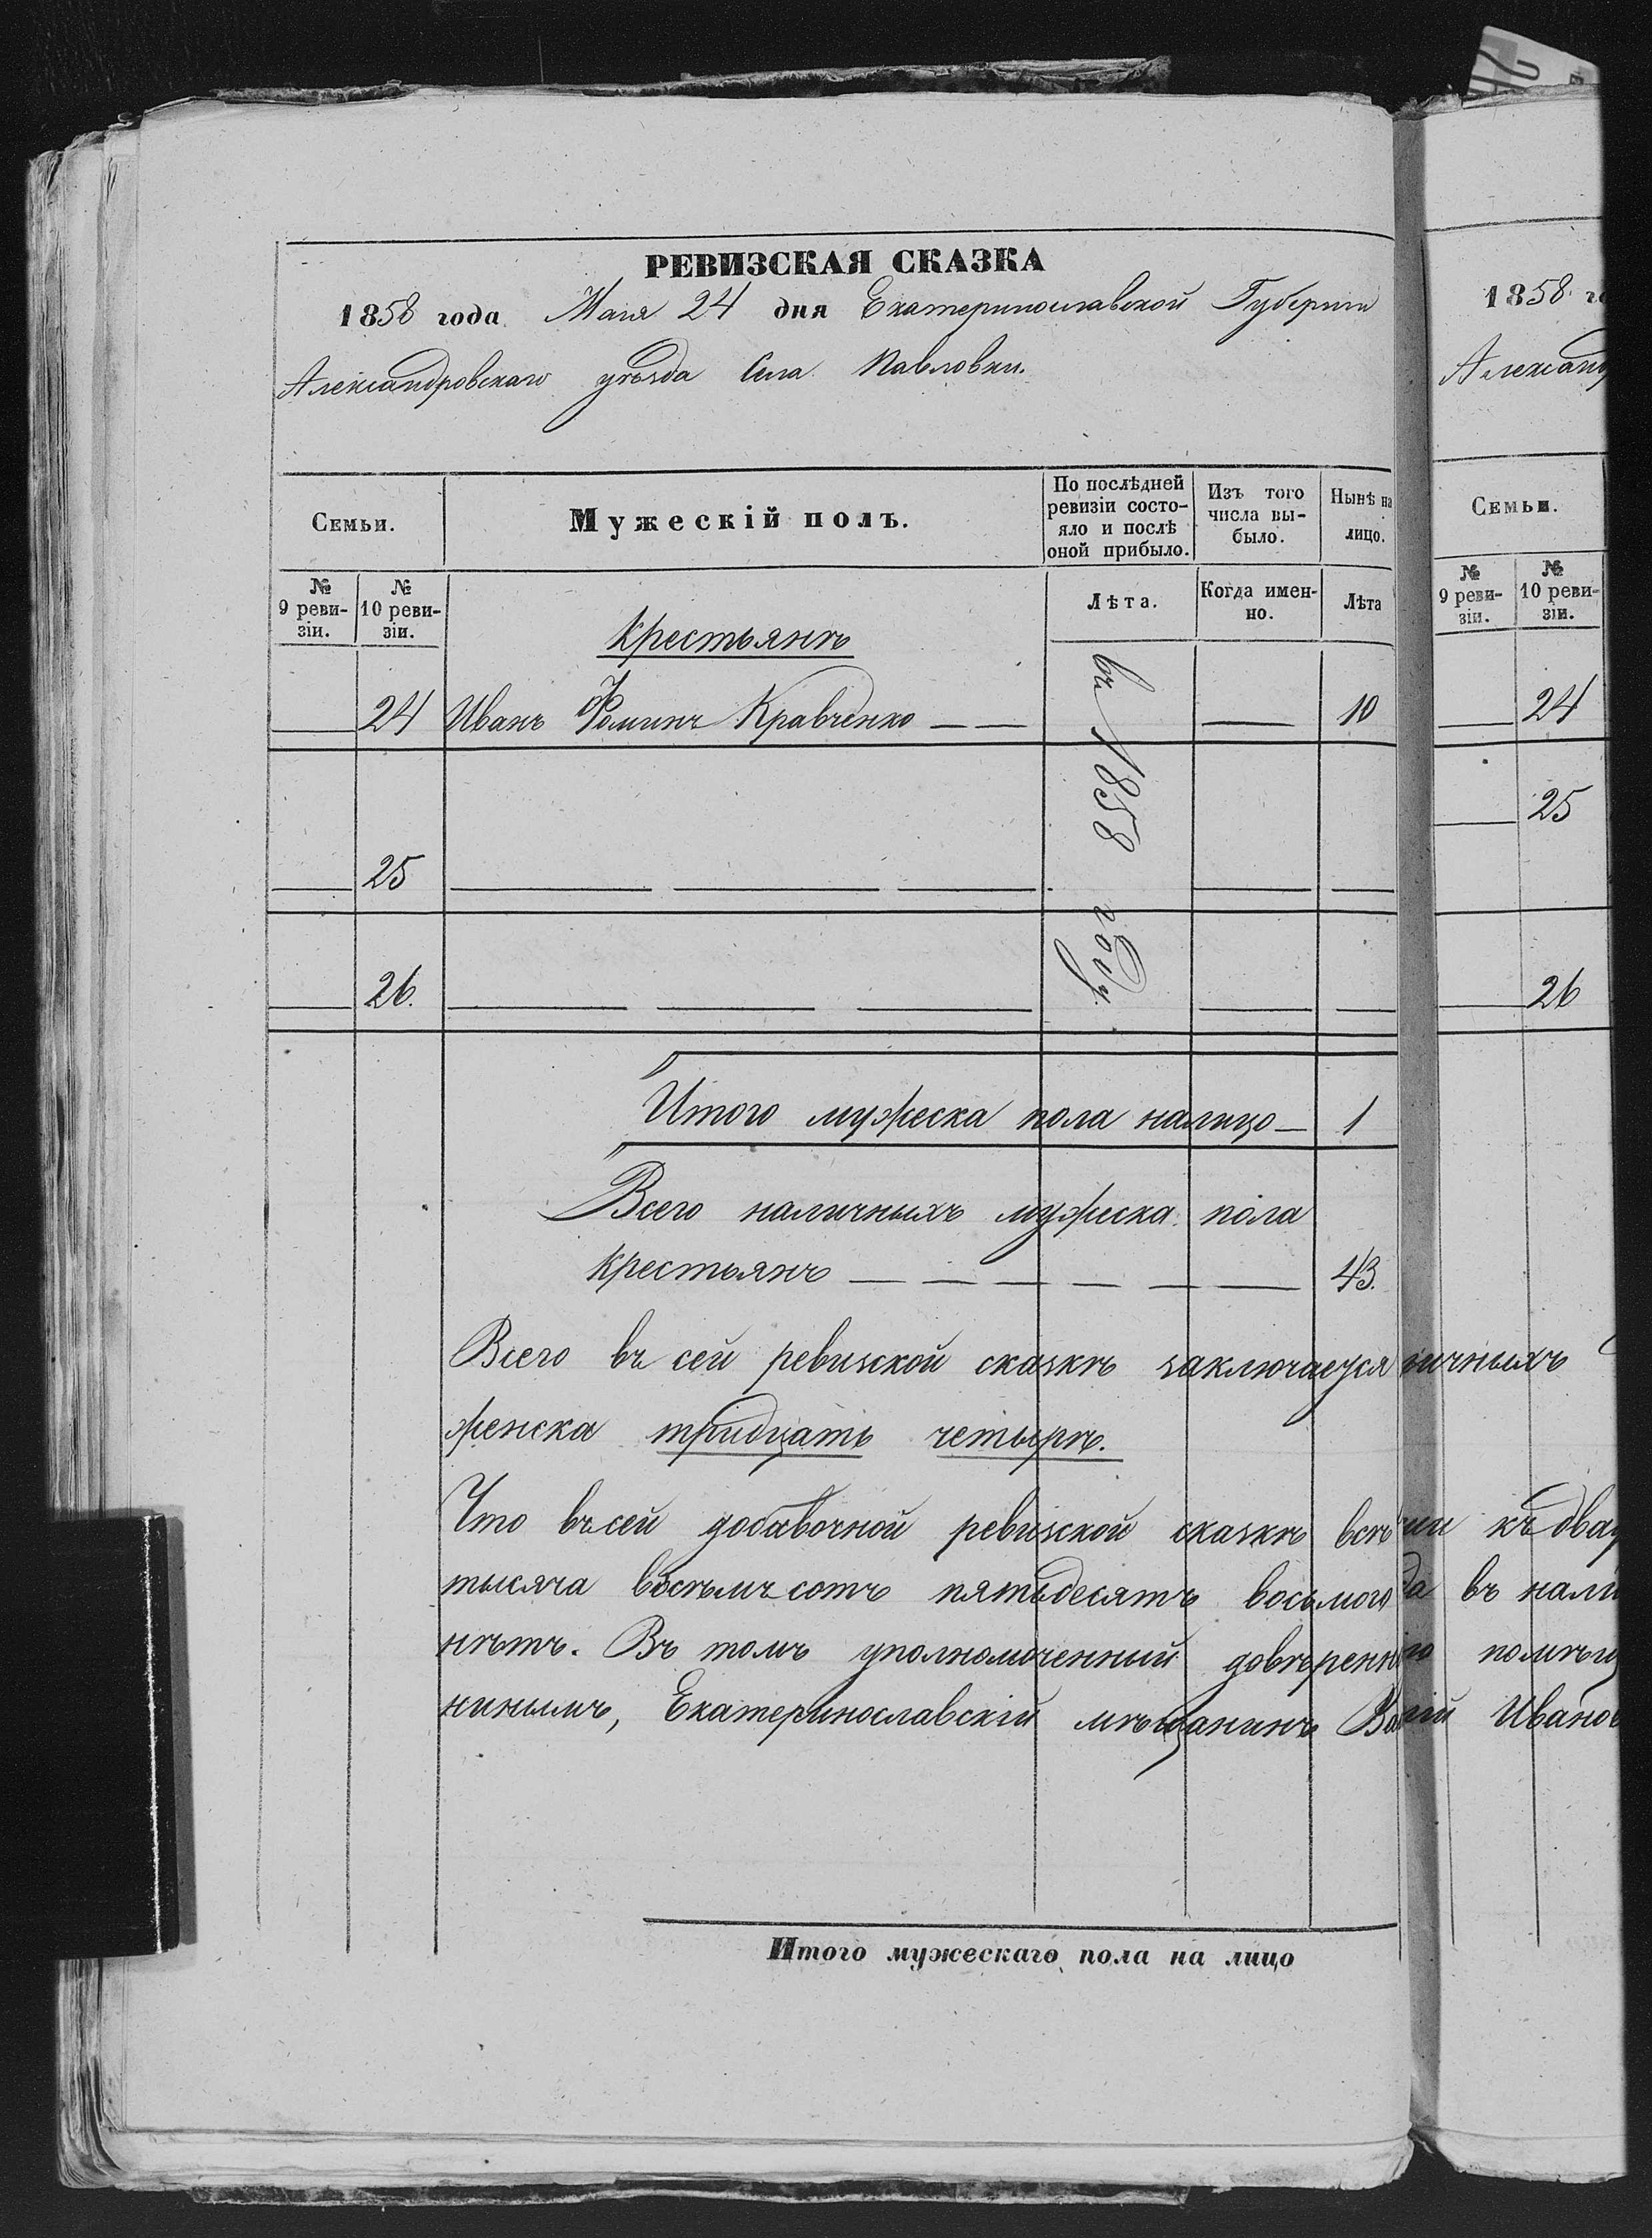 РЕВИЗСКАЯ СКАЗКА
1858 года Мая 24 дня Екатеринославской Губерніи
Александровскаго уѣзда Села Павловки.
Семьи.
Мужескій полъ.
По послѣдней ревизіи состо-
яло и послѣ
оной прибыло.
Изъ того
числа вы-
было.
Нынѣ на
лицо.
№
9 реви-
зіи.
№
10 реви-
зіи.
Лѣта.
Когда имен-
но.
Лѣта
Крестьянъ
24 Иванъ Фоминъ Кравченко 10
въ 1858 году
25
26.
Итого мужеска пола налицо 1
Всего наличныхъ мужеска пола
крестьянъ 43.
Всего въ сей ревизской сказкѣ заключается
женска тридцать четыре.
Что въ сей добавочной ревизской сказкѣ всѣ
тысяча восемъ сотъ пятьдесятъ восьмого
нѣтъ. Въ томъ уполномоченный довѣренн
нинымъ, Екатеринославскій мѣщанинъ Ва
Итого мужескаго пола на лицо
1858 го
Александ
Семьи.
№
9 реви-
зіи.
№
10 реви-
зіи.
24
25
26
ичныхъ
къ два
въ нали
помѣщ
Иванов